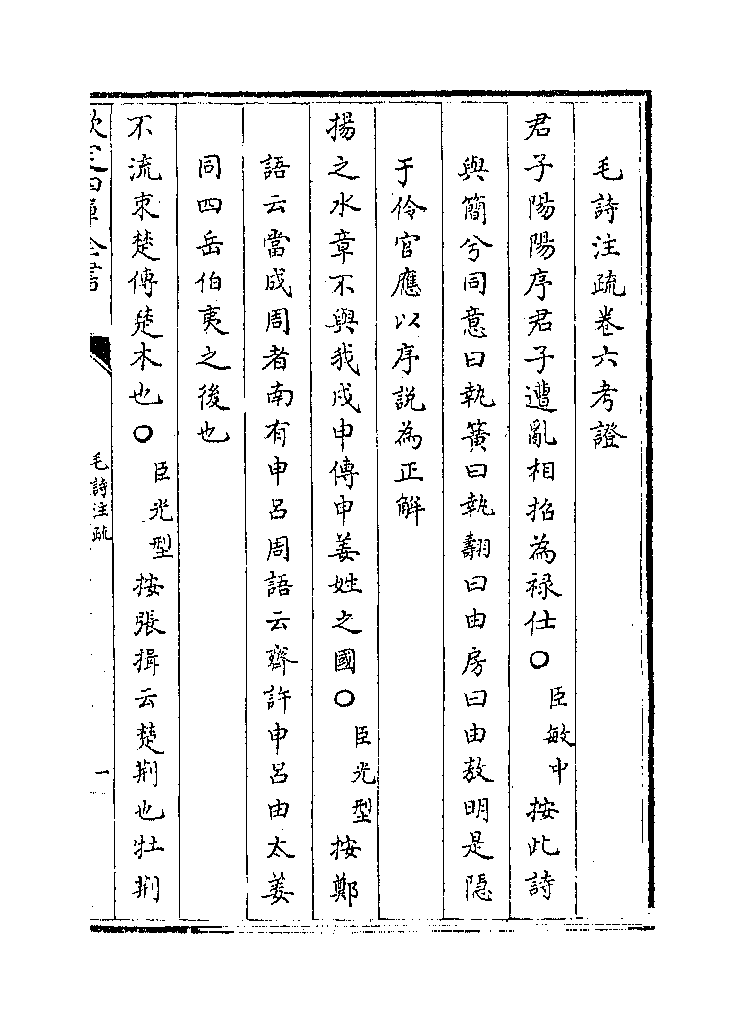 毛詩注疏卷六考證
君子陽陽序君子遭亂相招為祿仕○臣敏中按此詩
與簡兮同意曰執簧曰執翿曰由房曰由敖明是隱
于伶官應以序說為正解
揚之水章不與我戍申傳申姜姓之國○臣光型按鄭
語云當成周者南有申呂周語云齊許申呂由太姜
同四岳伯夷之後也
不流束楚傳楚木也○臣光型按張揖云楚荆也牡荆
欽定四庫全書
毛詩注疏
一